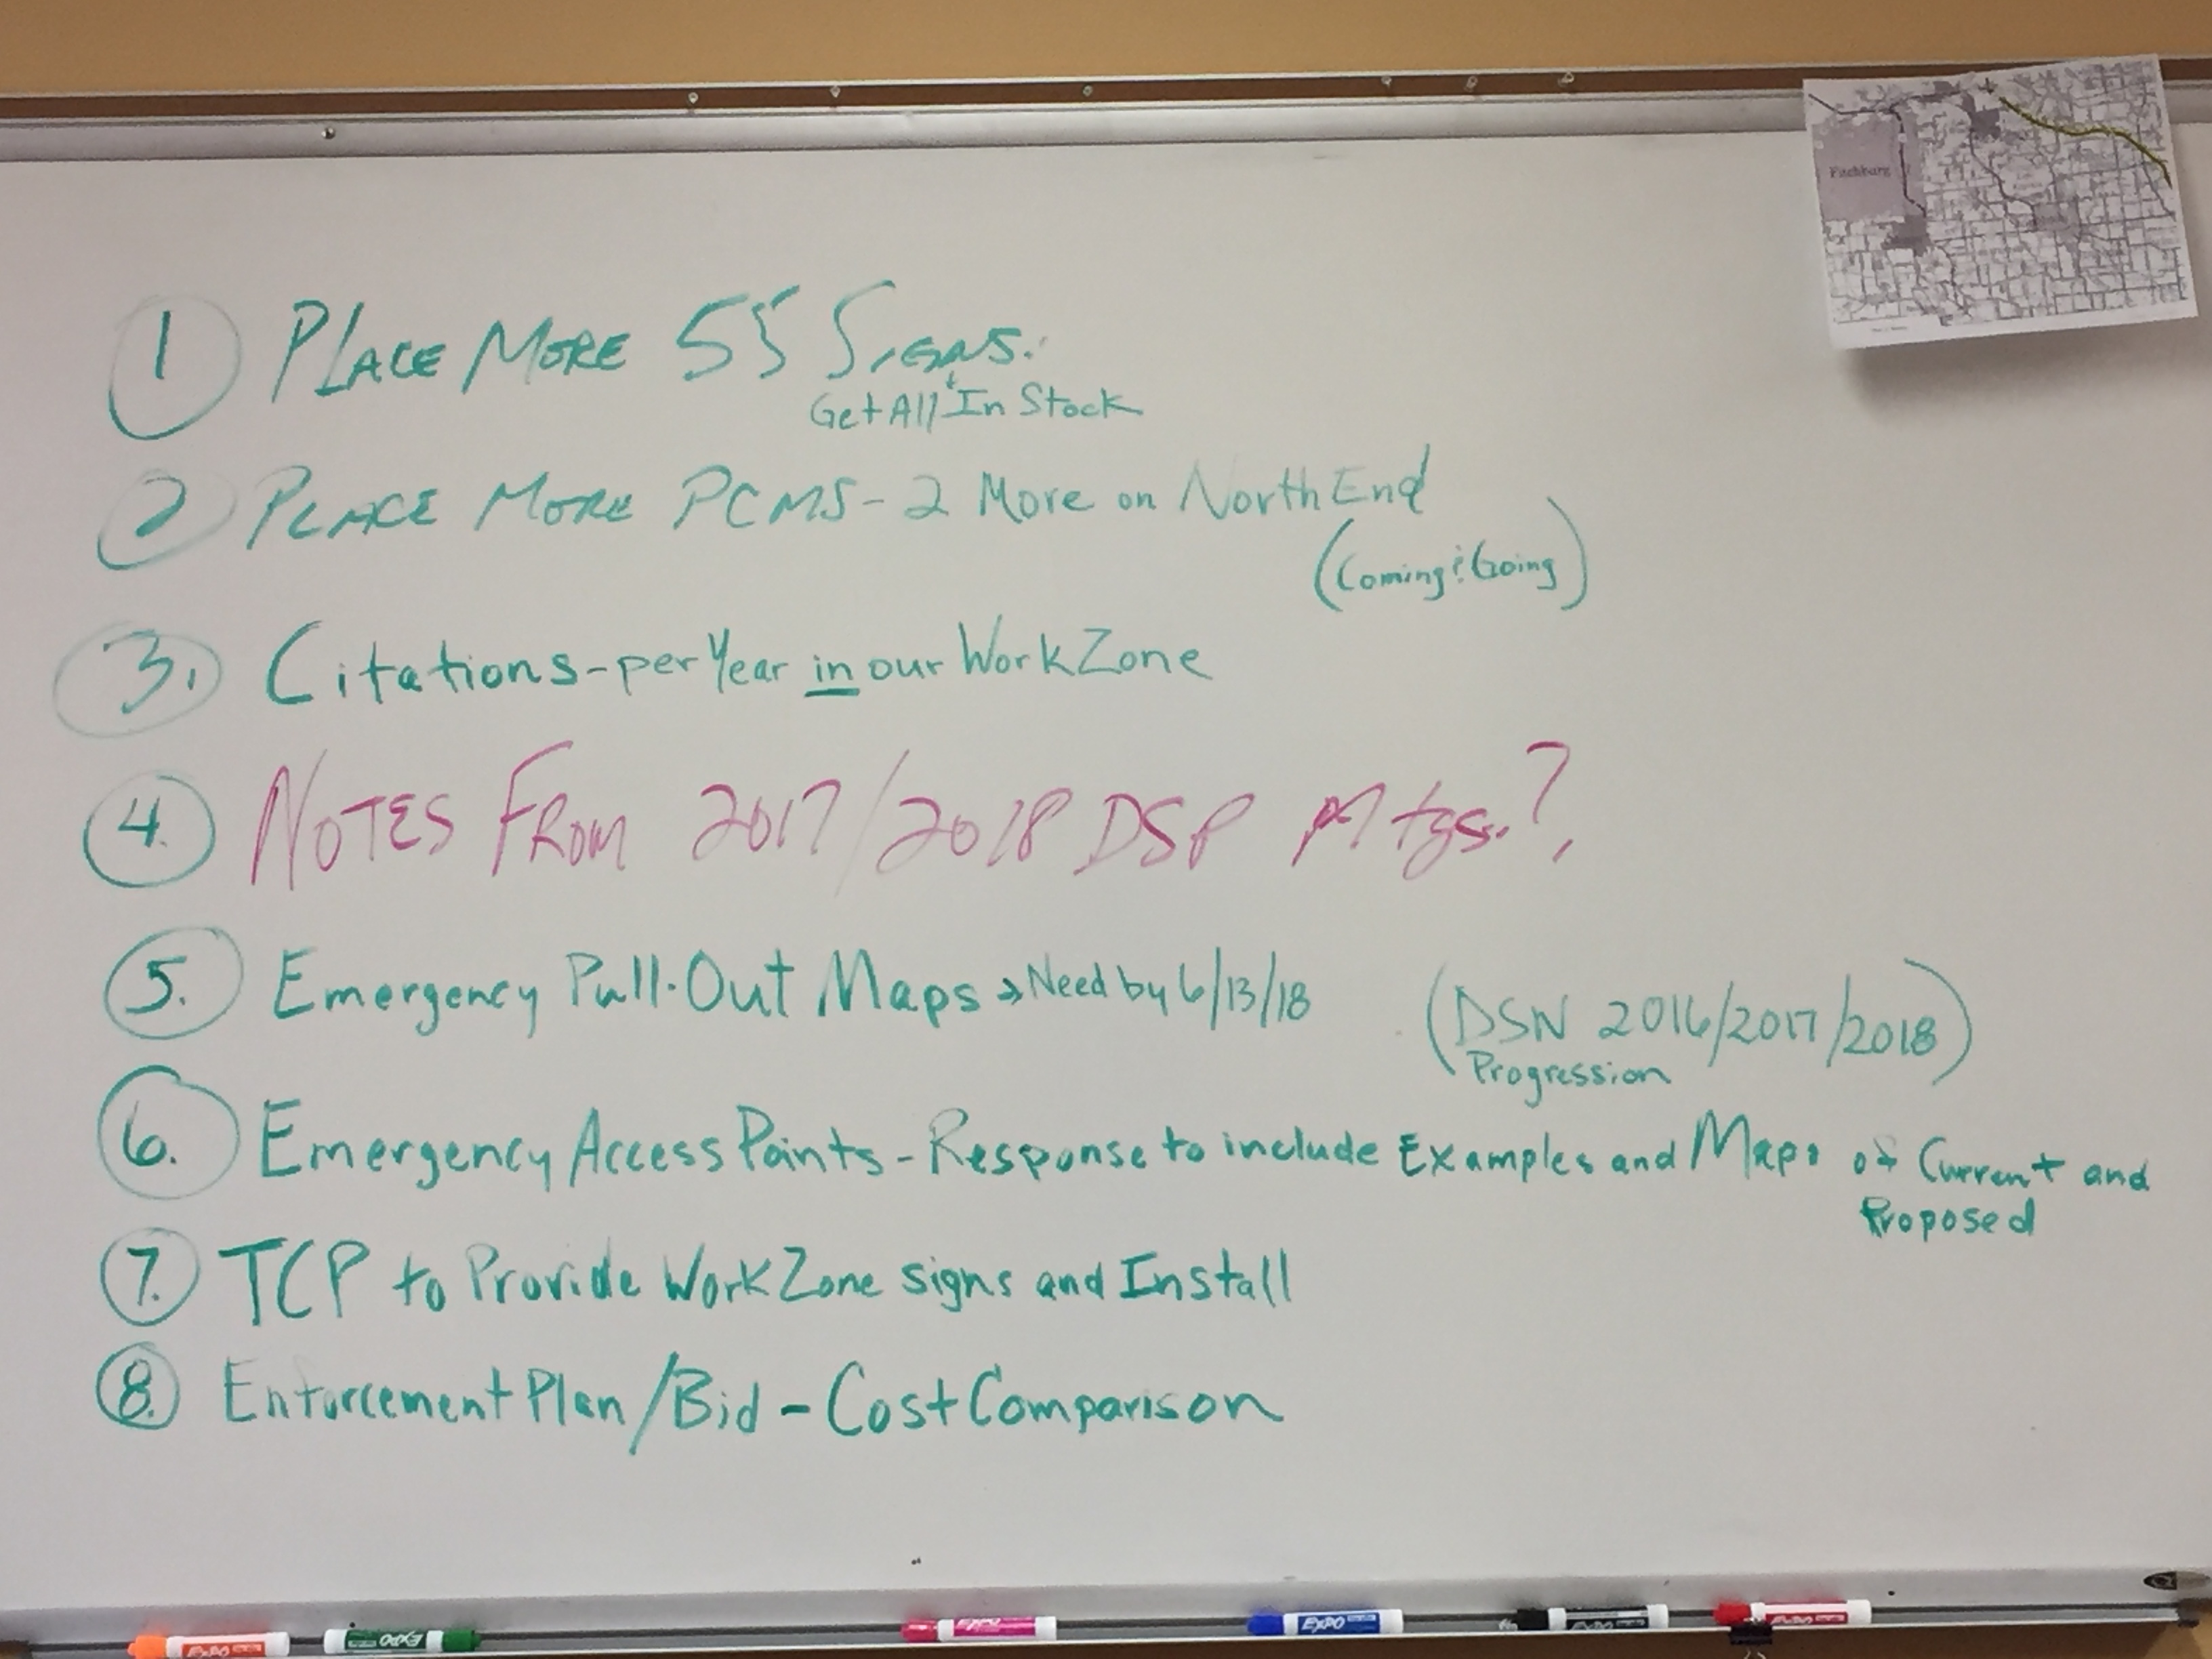 Fitchburg
1 PLACE MORE 55 SIGNS.
Get All In Stock
2 PLACE MORE PCMS - 2 More on North End
(Coming & Going)
3. Citations - per Year in our Work Zone
4. NOTES FROM 2017/2018 DSP Mtgs.?
5. Emergency Pull-Out Maps → Need by 6/13/18
(DSN 2016/2017/2018)
Progression
6. Emergency Access Points - Response to include Examples and Maps of Current and
Proposed
7. TCP to Provide Work Zone signs and Install
8. Enforcement Plan/Bid - Cost Comparison
EXPO EXPO EXPO EXPO EXPO EXPO